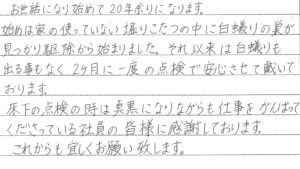 お世話になり始めて20年余りになります。
始めは家の使っていない堀りこたつの中に白蟻りの巣が
見っかり駆除から始まりました。それ以来は白蟻りも
出る事もなく2ヶ月に一度の点検で安心させて戴いて
おります。
床下の点検の時は真黒になりながらも仕事をがんばって
くださっている社員の皆様に感謝しております。
これからも宜しくお願い致します。